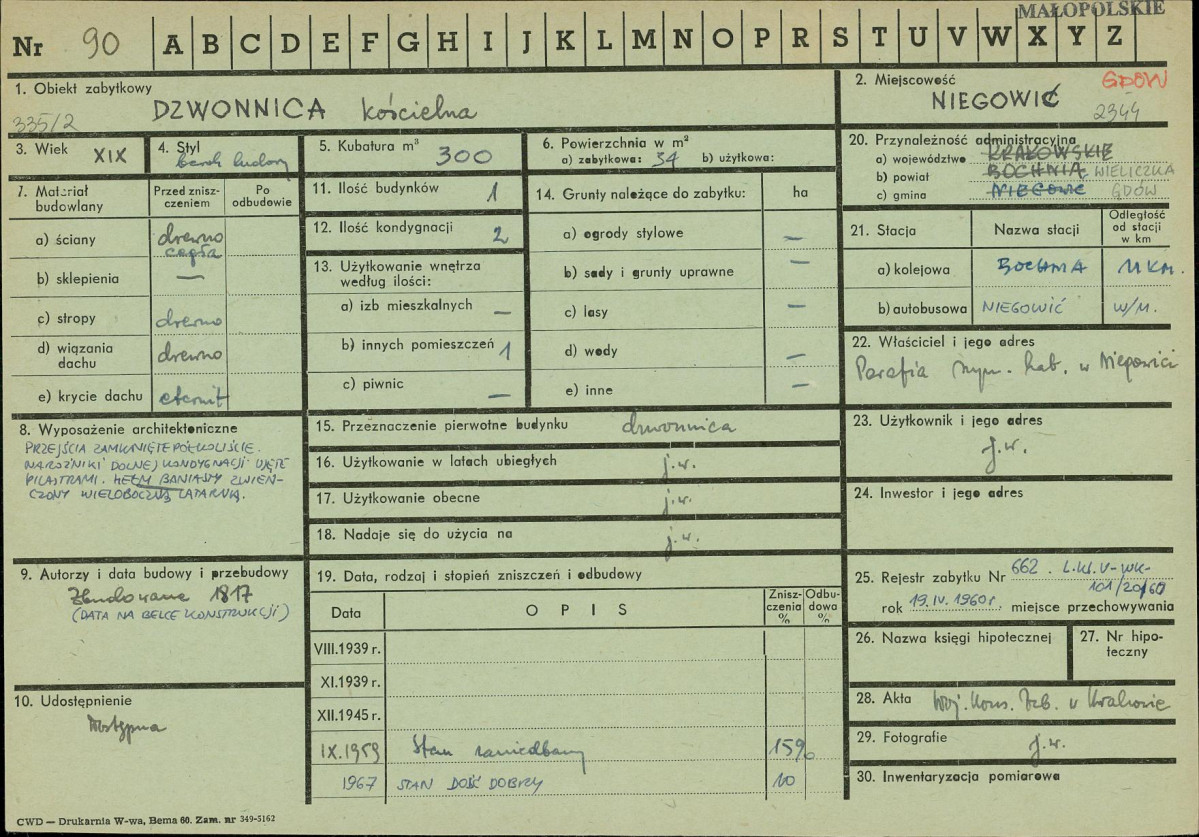 MAŁOPOLSKIE
Nr 90 A B C D E F G H I J K L M N O P R S T U V W X Y Z
1. Obiekt zabytkowy
DZWONNICA kościelna
335/2
2. Miejscowość GDÓW
NIEGOWIĆ
2344
3. Wiek XIX
4. Styl
barok ludowy
5. Kubatura m³ 300
6. Powierzchnia w m²
a) zabytkowa: 34 b) użytkowa:
20. Przynależność administracyjna
a) województwo KRAKOWSKIE
b) powiat BOCHNIA WIELICZKA
c) gmina NIEGOWIĆ GDÓW
7. Materiał budowlany
Przed zniszczeniem
Po odbudowie
a) ściany drewno
cegła
b) sklepienia —
c) stropy drewno
d) wiązania dachu drewno
e) krycie dachu eternit
11. Ilość budynków 1
12. Ilość kondygnacji 2
13. Użytkowanie wnętrza
według ilości:
a) izb mieszkalnych —
b) innych pomieszczeń 1
c) piwnic —
14. Grunty należące do zabytku: ha
a) ogrody stylowe —
b) sady i grunty uprawne —
c) lasy —
d) wody —
e) inne —
21. Stacja
Nazwa stacji
Odległość od stacji w km
a) kolejowa BOCHNIA 11 KM.
b) autobusowa NIEGOWIĆ W/M.
22. Właściciel i jego adres
Parafia rzym. kat. w Niegowici
8. Wyposażenie architektoniczne
PRZEJŚCIA ZAMKNIĘTE PÓŁKOLIŚCIE.
NAROŻNIKI DOLNEJ KONDYGNACJI UJĘTE
PILASTRAMI. HEŁM BANIASTY ZWIEŃ-
CZONY WIELOBOCZNĄ LATARNIĄ.
15. Przeznaczenie pierwotne budynku dzwonnica
16. Użytkowanie w latach ubiegłych j.w.
17. Użytkowanie obecne j.w.
18. Nadaje się do użycia na j.w.
23. Użytkownik i jego adres
j.w.
24. Inwestor i jego adres
9. Autorzy i data budowy i przebudowy
Zbudowana 1817
(DATA NA BELCE KONSTRUKCJI)
19. Data, rodzaj i stopień zniszczeń i odbudowy
Data
OPIS
Zniszczenia %
Odbudowa %
VIII.1939 r.
XI.1939 r.
XII.1945 r.
IX.1959 Stan zaniedbany 15%
1967 STAN DOŚĆ DOBRY 10
25. Rejestr zabytku Nr 662. L.Kl.V-WK-
101/20/60
rok 19.IV.1960r. miejsce przechowywania
26. Nazwa księgi hipotecznej
27. Nr hipoteczny
10. Udostępnienie
dostępna
28. Akta Woj. Kons. Zab. w Krakowie
29. Fotografie j.w.
30. Inwentaryzacja pomiarowa
CWD — Drukarnia W-wa, Bema 60. Zam. nr 349-5162